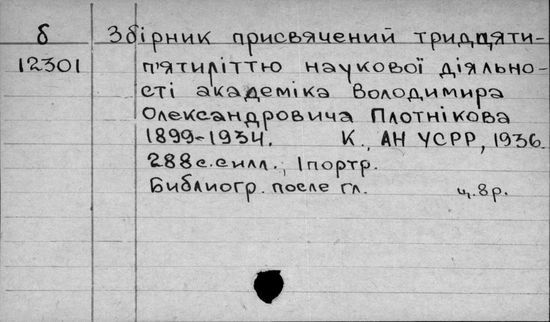 б Збірник присвячений тридцяти-
12301 п'ятиліттю наукової діяльно-
сті академіка Володимира
Олександровича Плотнікова
1899-1934. К., АН УСРР, 1936.
288с.силл., 1портр.
Библиогр. после гл. ц. 8р.